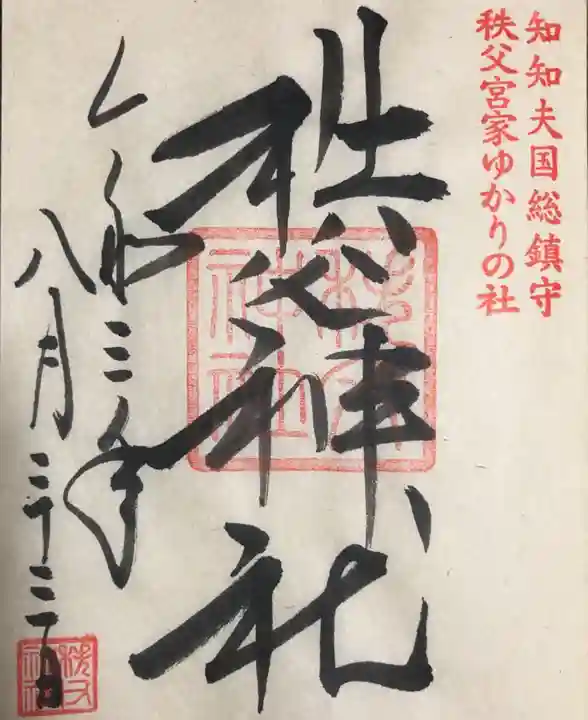 知知夫国総鎮守
秩父宮家ゆかりの社
秩父神社
秩父神社
令和三年
八月二十三日
秩父
神社